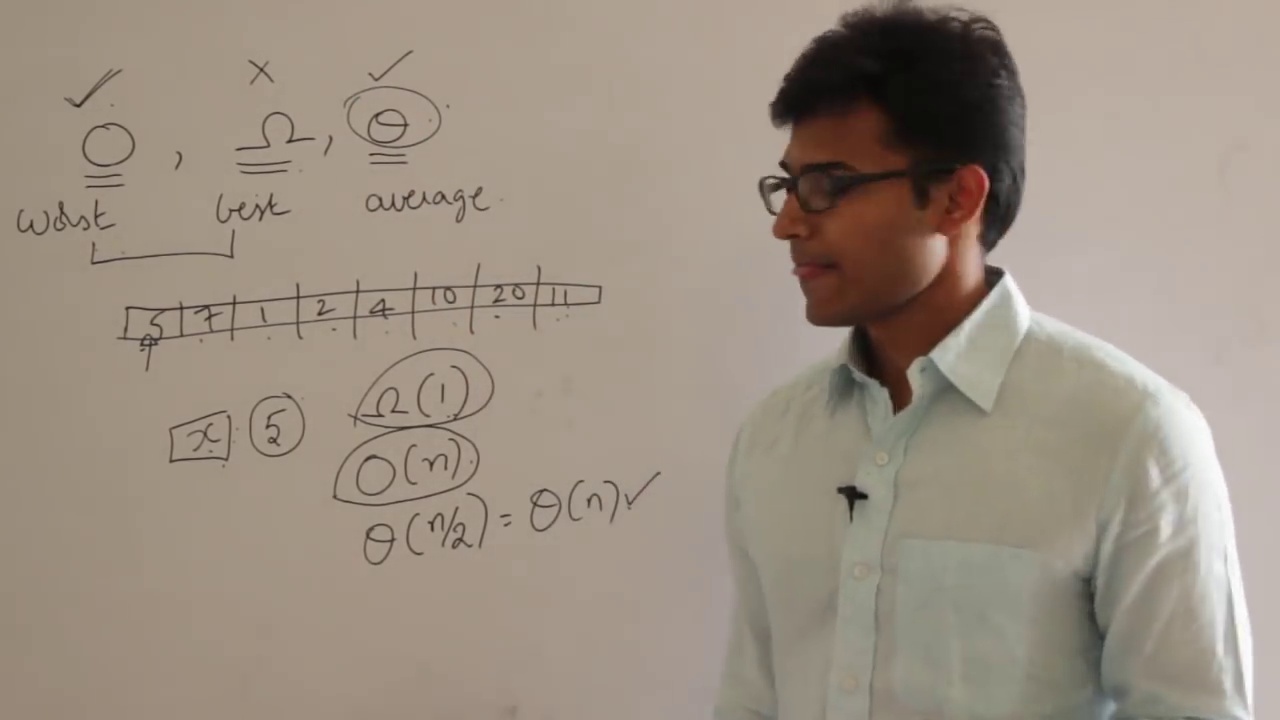 O , Ω , θ
worst best average
5 7 1 2 4 10 20 11
x 5 Ω(1)
O(n)
θ(n/2) = θ(n)